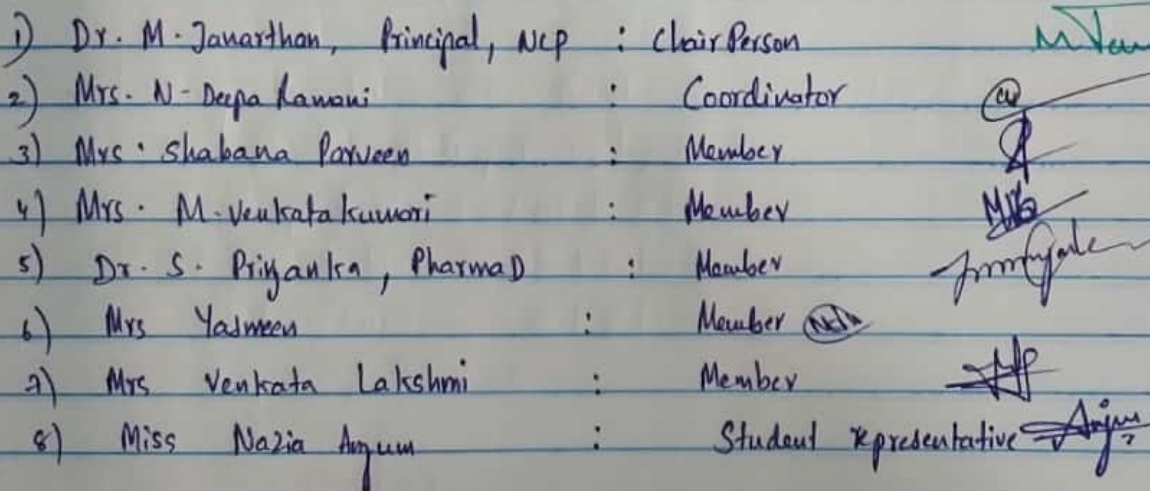 1) Dr. M. Janarthan, Principal, NCP : Chair Person
2) Mrs. N. Deepa Ramani : Coordinator
3) Mrs. Shabana Parveen : Member
4) Mrs. M. Venkata kumari : Member
5) Dr. S. Priyanka, PharmaD : Member
6) Mrs Yasmeen : Member
7) Mrs Venkata Lakshmi : Member
8) Miss Nazia Anjum : Student representative Anjum